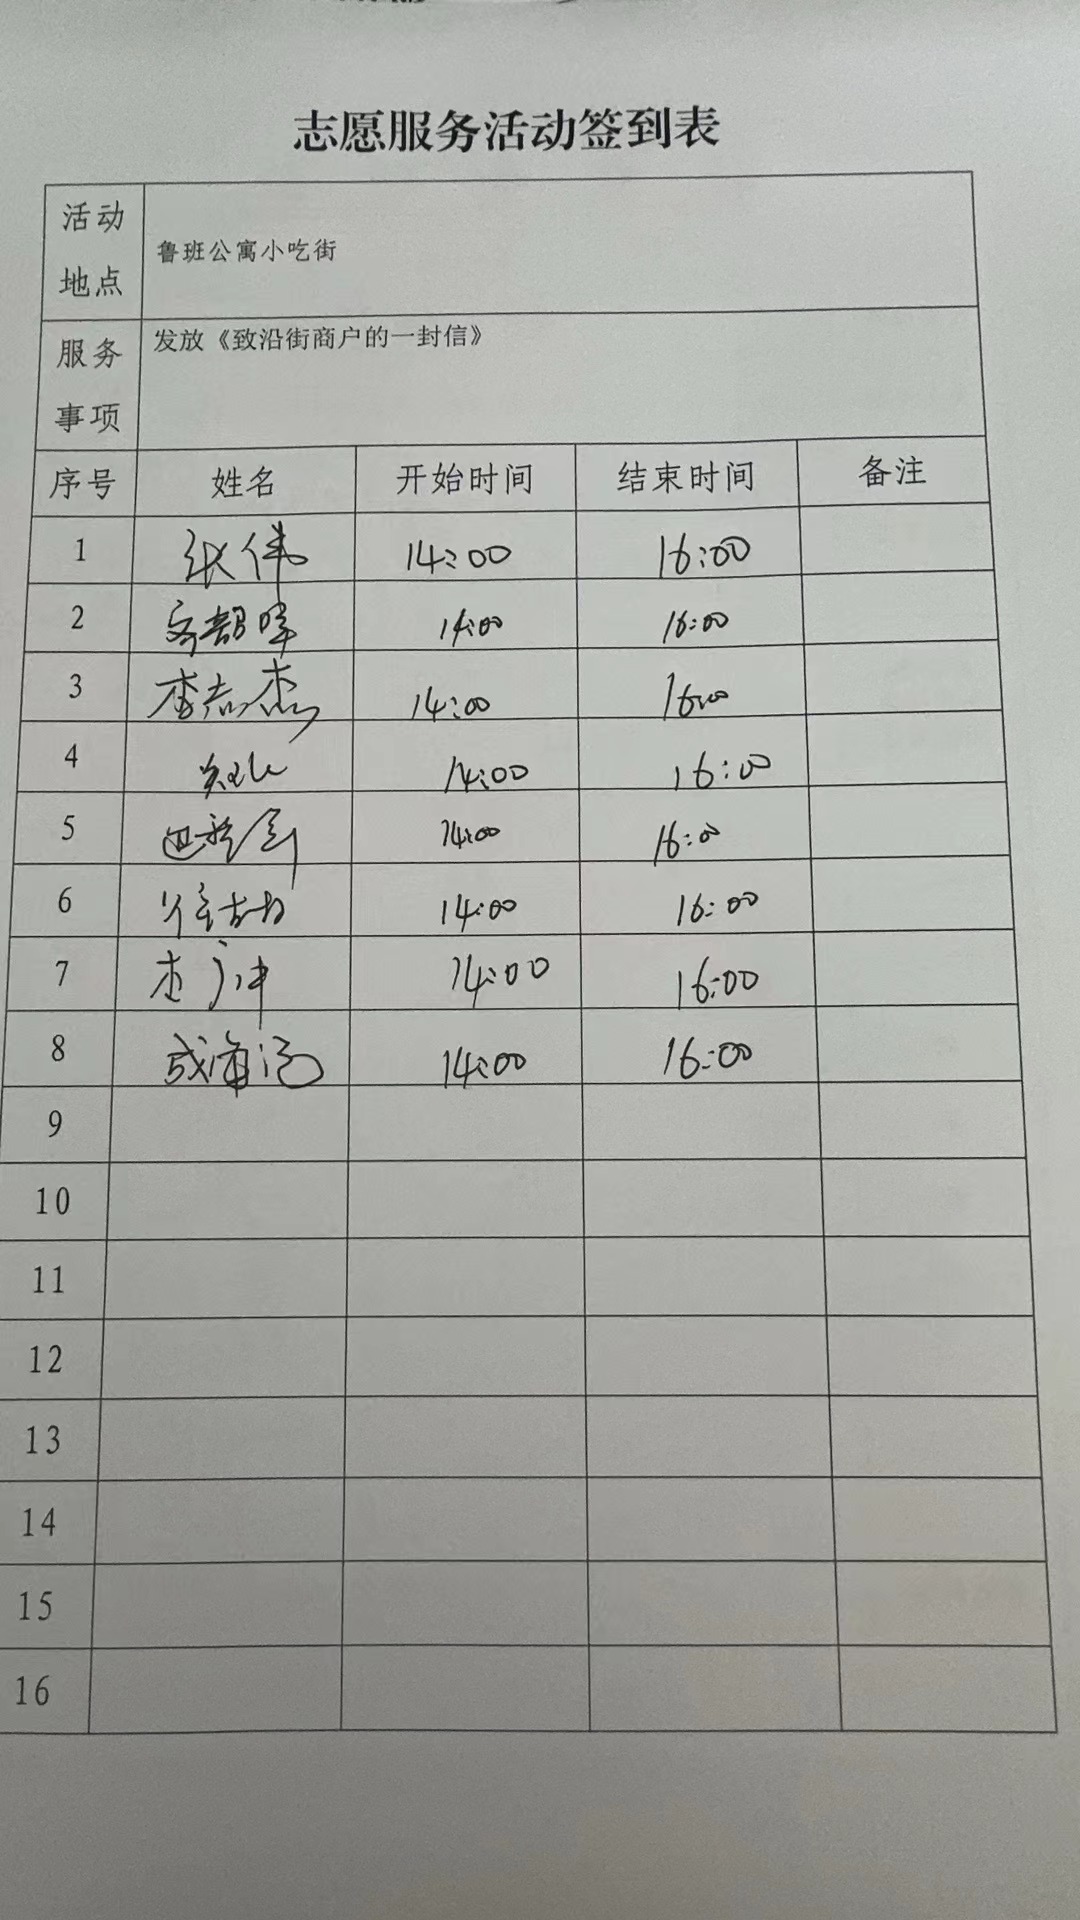 志愿服务活动签到表
活动地点 鲁班公寓小吃街
服务事项 发放《致沿街商户的一封信》
序号 姓名 开始时间 结束时间 备注
1 张伟 14:00 16:00
2 14:00 16:00
3 李志杰 14:00 16:00
4 14:00 16:00
5 14:00 16:00
6 14:00 16:00
7 14:00 16:00
8 14:00 16:00
9
10
11
12
13
14
15
16